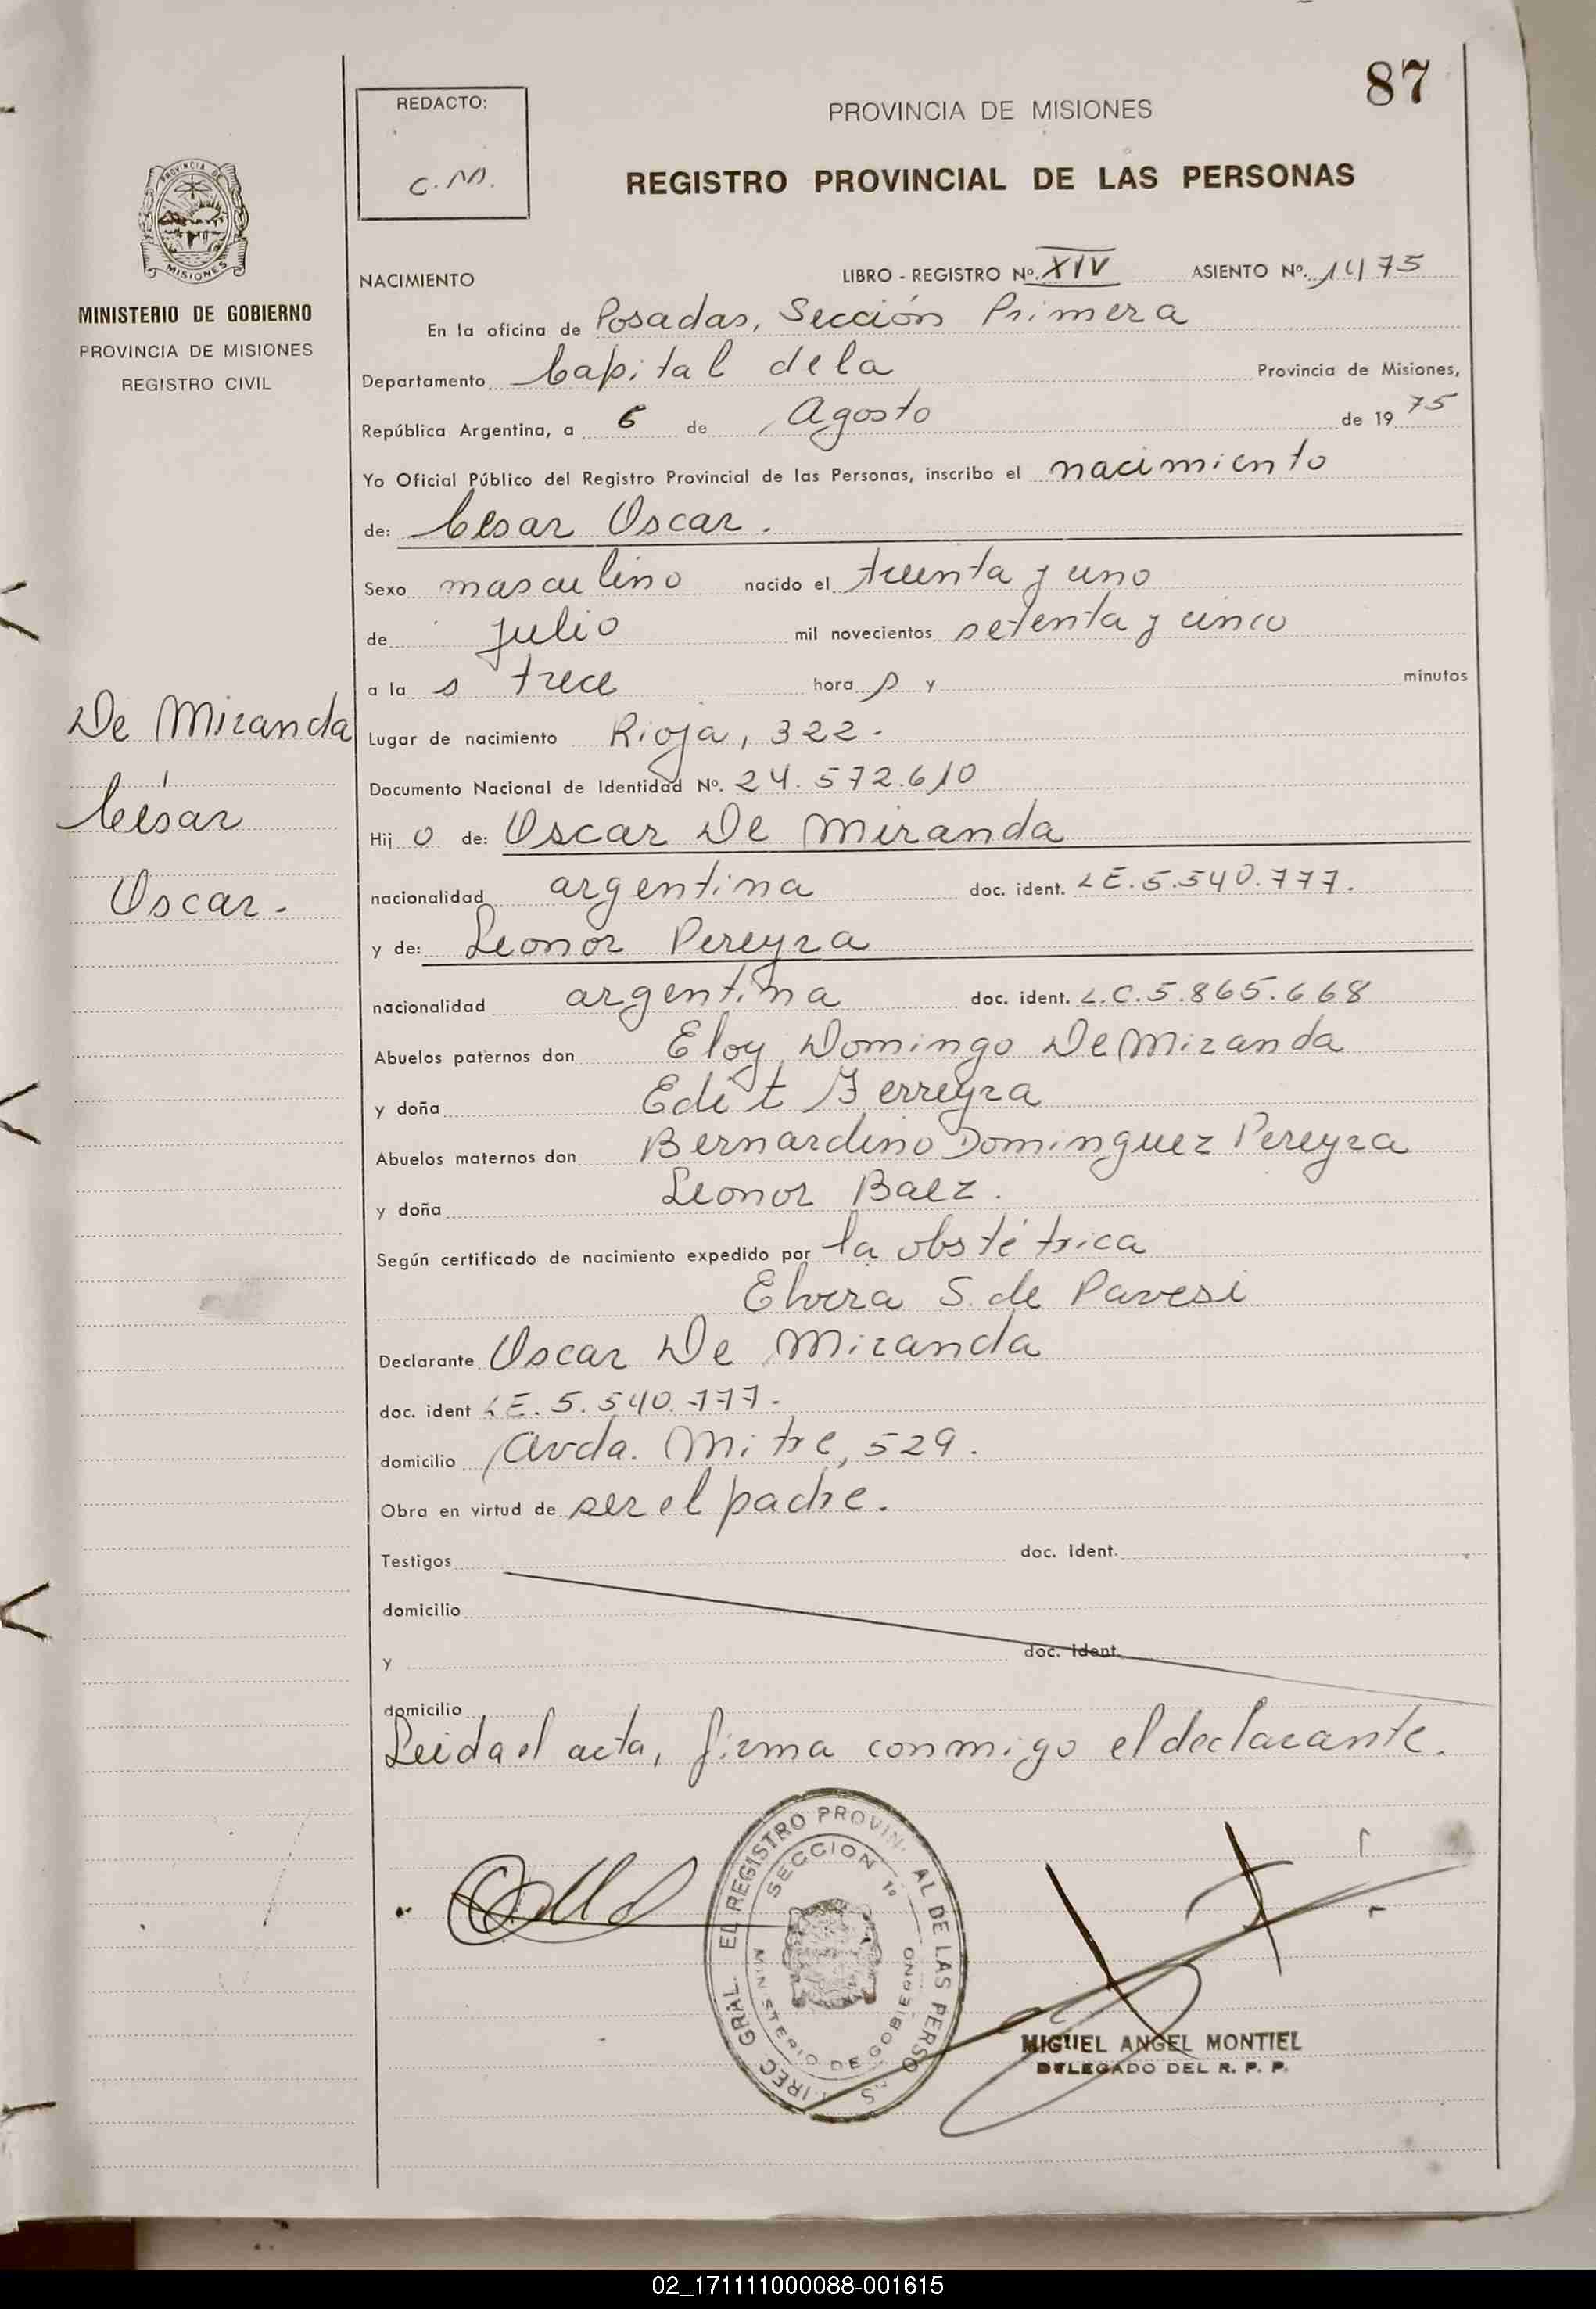 87
REDACTO:
C.M.
PROVINCIA DE MISIONES
REGISTRO PROVINCIAL DE LAS PERSONAS
PROVINCIA DE
MISIONES
MINISTERIO DE GOBIERNO
PROVINCIA DE MISIONES
REGISTRO CIVIL
NACIMIENTO LIBRO - REGISTRO Nº. XIV ASIENTO Nº. 1475
En la oficina de Posadas, Sección Primera
Departamento Capital de la Provincia de Misiones,
República Argentina, a 6 de Agosto de 19 75
Yo Oficial Público del Registro Provincial de las Personas, inscribo el nacimiento
de: César Oscar.
Sexo masculino nacido el treinta y uno
de julio mil novecientos setenta y cinco
a la s trece hora s y minutos
De Miranda
César
Oscar.
Lugar de nacimiento Rioja, 322.
Documento Nacional de Identidad Nº. 24.572.610
Hij o de: Oscar De Miranda
nacionalidad argentina doc. ident. LE.5.540.777.
y de: Leonor Pereyra
nacionalidad argentina doc. ident. L.C.5.865.668
Abuelos paternos don Eloy Domingo De Miranda
y doña Edit Ferreyra
Abuelos maternos don Bernardino Dominguez Pereyra
y doña Leonor Baez.
Según certificado de nacimiento expedido por la obstétrica
Elvira S. de Pavesi
Declarante Oscar De Miranda
doc. ident LE.5.540.777.
domicilio Avda. Mitre, 529.
Obra en virtud de ser el padre.
Testigos doc. ident.
domicilio
y doc. ident.
domicilio
Leida el acta, firma conmigo el declarante.
SECCION 1º
MINISTERIO DE GOBIERNO
MIGUEL ANGEL MONTIEL
DELEGADO DEL R. P. P.
02_171111000088-001615